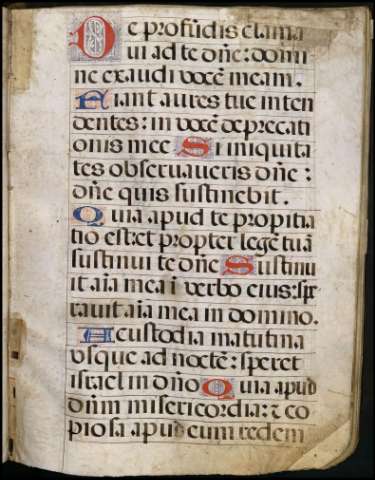 De profūdis clama
ui ad te dn̄e: domi
ne exaudi vocē meam.
Fiant aures tue inten
dentes: in vocē deprecati
onis mee Si iniquita
tes obseruaueris dn̄e :
dn̄e quis sustinebit.
Quia apud te propitia
tio est: et propter legē tuā
sustinui te dn̄e Sustinu
it aīa mea ī verbo eius: spe
rauit aīa mea in domino.
A custodia matutina
vsque ad noctē: speret
israel in dn̄o Quia apud
dn̄m misericordia: ⁊ co
piosa apud eum redem